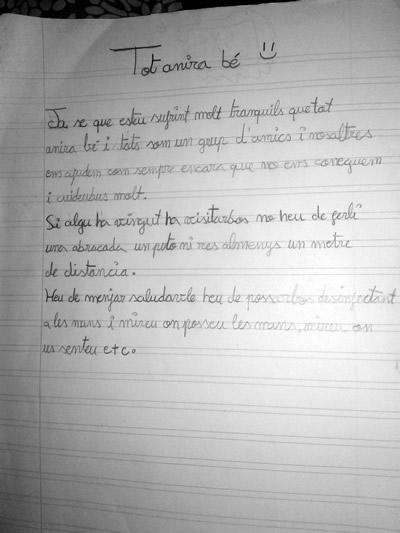 Tot anira bé :)
Ja se que esteu sufrint molt tranquils que tot
anira bé i tots som un grup d'amics i nosaltres
ens ajudem com sempre encara que no ens coneguem
i cuideubus molt.
Si algu ha vingut ha visitarbos no heu de ferli
una abraçada un peto ni res almenys un metre
de distància.
Heu de menjar saludavle heu de possarbos desinfectant
a les mans i mireu on posseu les mans, mireu on
us senteu etc.